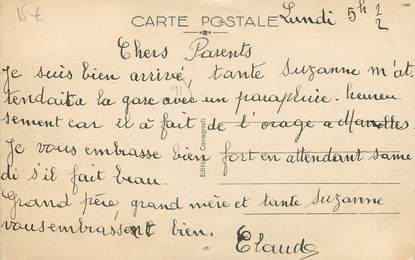 15 €
CARTE POSTALE
Lundi 5h 1/2
Chers Parents
Je suis bien arrivé, tante Suzanne m'at
tendait a la gare avec un parapluie. heureu
sement car il à fait de l'orage a
Je vous embrasse bien fort en attendant same
di s'il fait beau.
Grand père grand mère et tante Suzanne
vous embrassent bien.
Claude